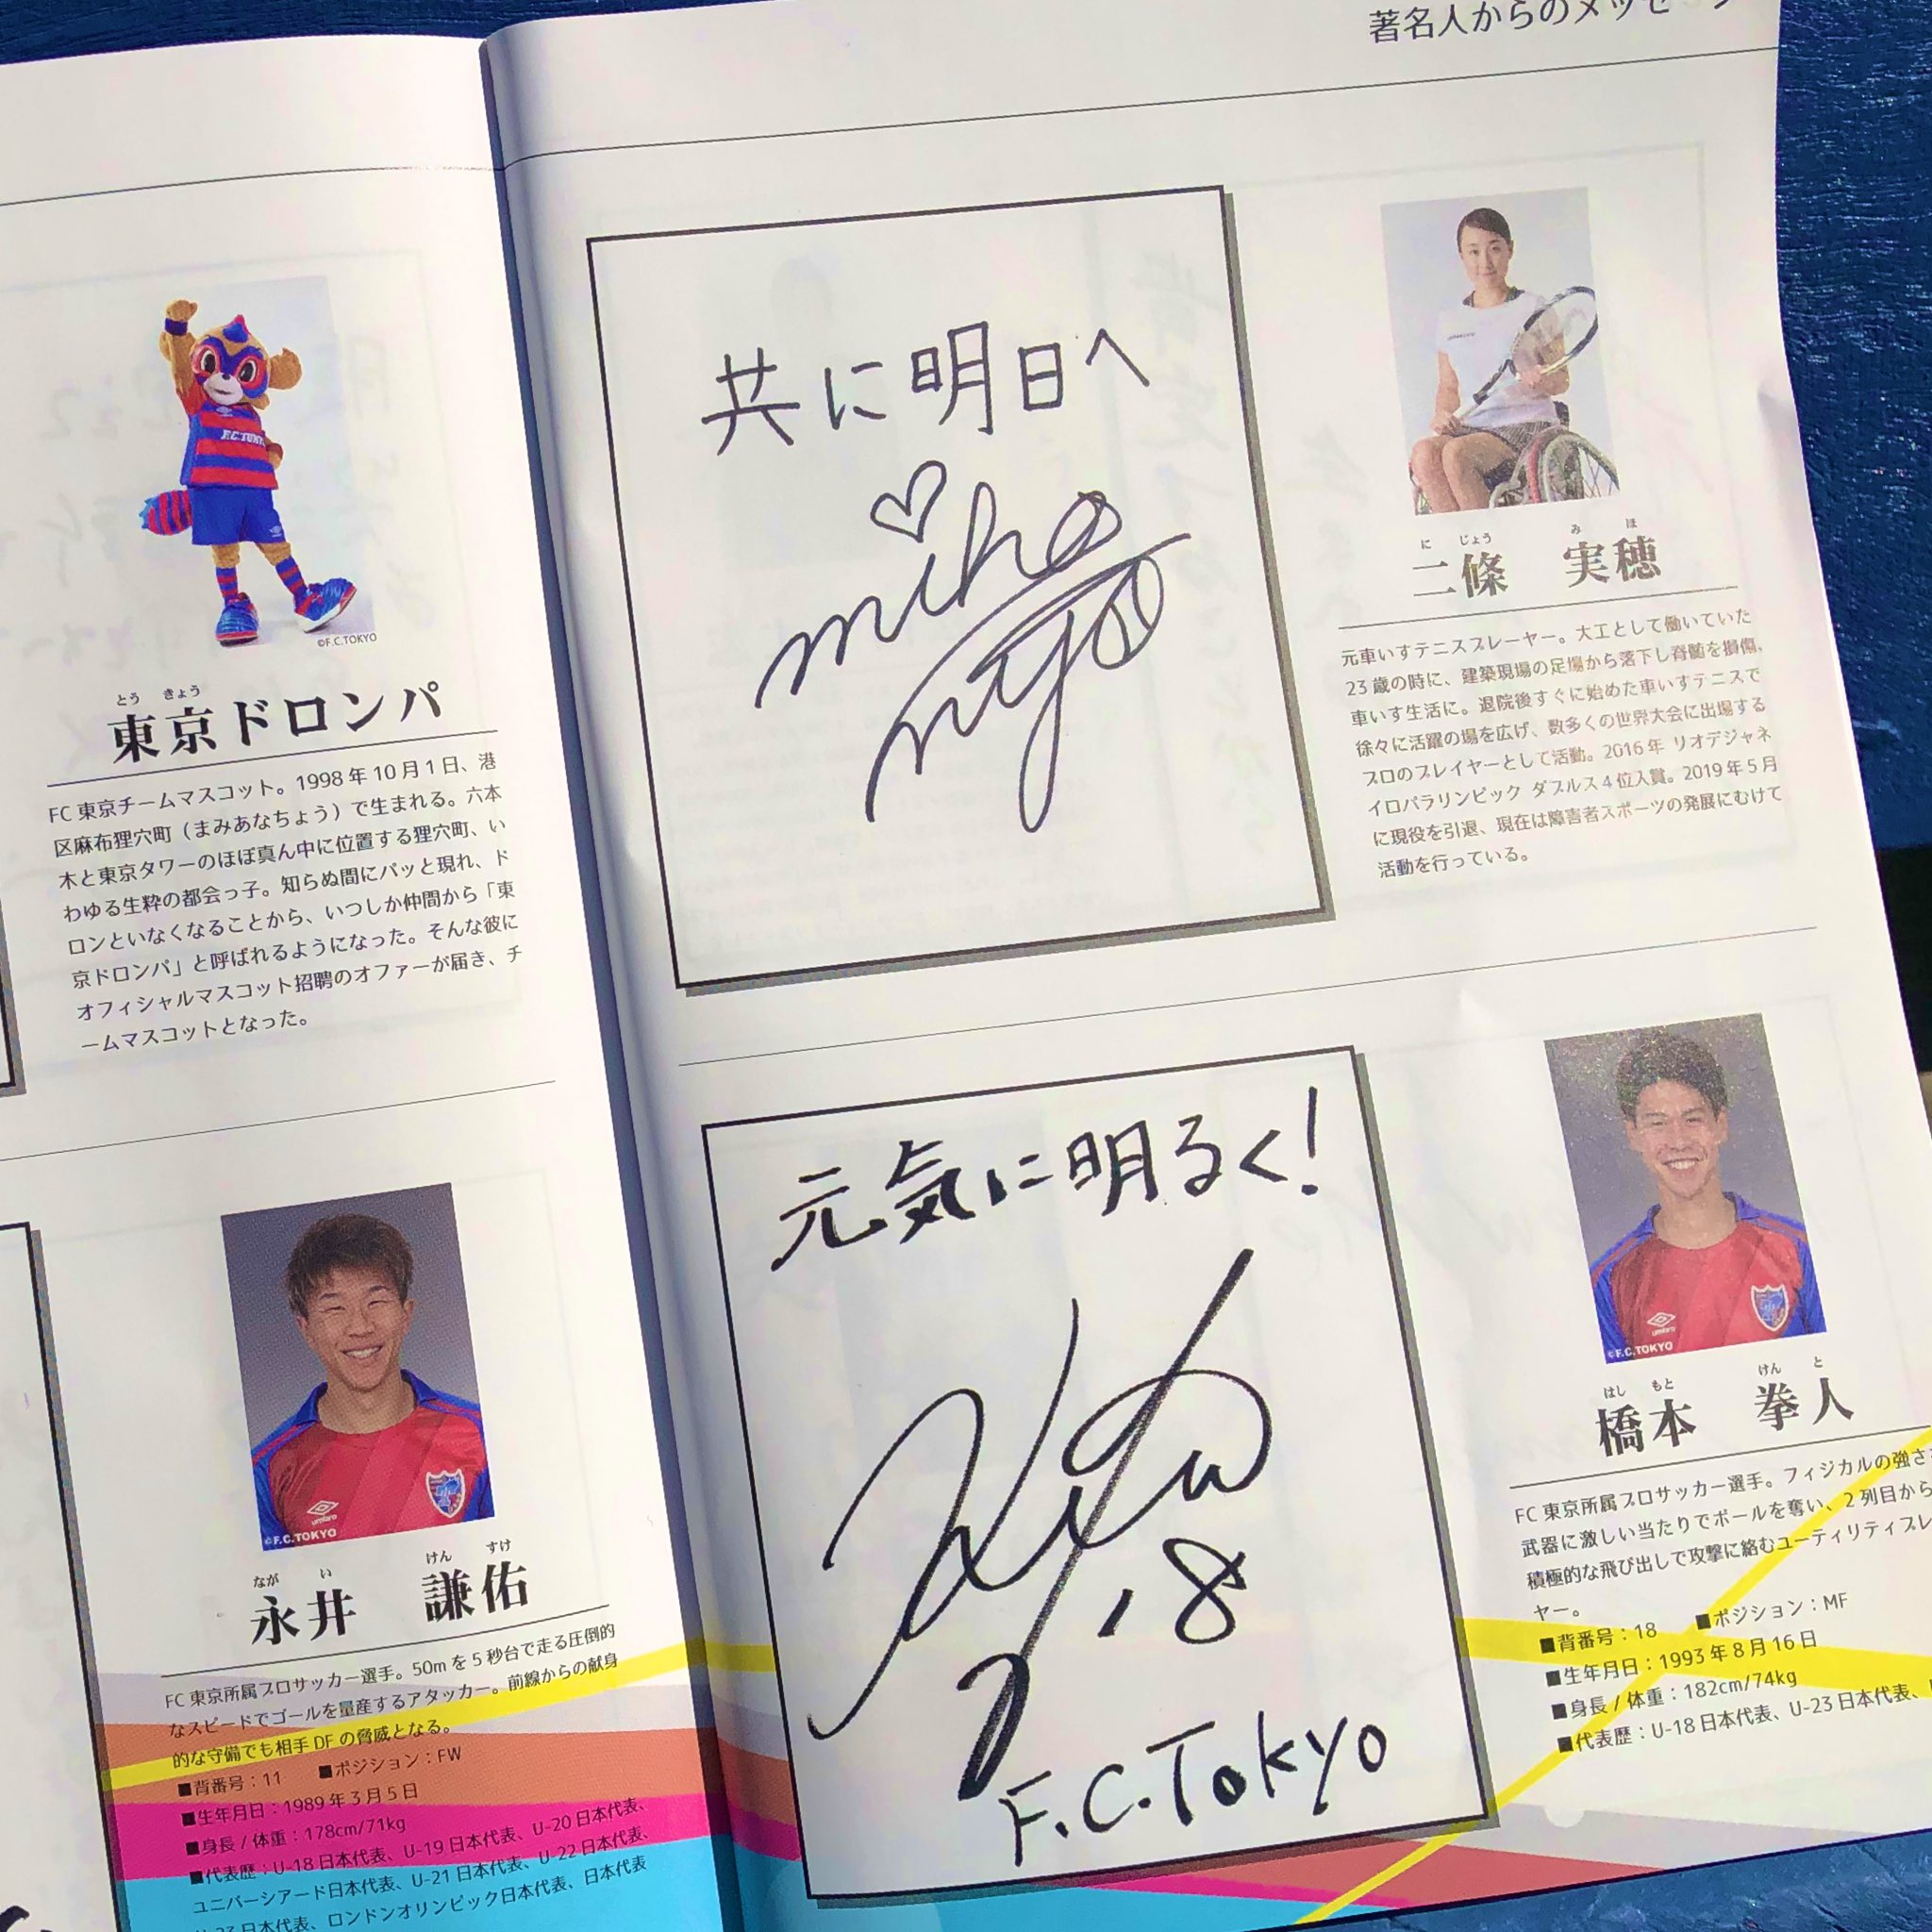 ©F.C.TOKYO
とう きょう
東京ドロンパ
FC 東京チームマスコット。1998 年 10 月 1 日、港
区麻布狸穴町（まみあなちょう）で生まれる。六本
木と東京タワーのほぼ真ん中に位置する狸穴町、い
わゆる生粋の都会っ子。知らぬ間にパッと現れ、ド
ロンといなくなることから、いつしか仲間から「東
京ドロンパ」と呼ばれるようになった。そんな彼に
オフィシャルマスコット招聘のオファーが届き、チ
ームマスコットとなった。
umbro
©F.C.TOKYO
なが い けん すけ
永井 謙佑
FC 東京所属プロサッカー選手。50m を 5 秒台で走る圧倒的
なスピードでゴールを量産するアタッカー。前線からの献身
的な守備でも相手 DF の脅威となる。
■背番号：11 ■ポジション：FW
■生年月日：1989 年 3 月 5 日
■身長 / 体重：178cm/71kg
■代表歴：U-18 日本代表、U-19 日本代表、U-20 日本代表、
ユニバーシアード日本代表、U-21 日本代表、U-22 日本代表、
U-23 日本代表、ロンドンオリンピック日本代表、日本代表
著名人からのメッセージ
共に明日へ
miho
に じょう み ほ
二條 実穂
元車いすテニスプレーヤー。大工として働いていた
23 歳の時に、建築現場の足場から落下し脊髄を損傷、
車いす生活に。退院後すぐに始めた車いすテニスで
徐々に活躍の場を広げ、数多くの世界大会に出場する
プロのプレイヤーとして活動。2016 年 リオデジャネ
イロパラリンピック ダブルス 4 位入賞。2019 年 5 月
に現役を引退、現在は障害者スポーツの発展にむけて
活動を行っている。
元気に明るく!
18
F.C.Tokyo
umbro
©F.C.TOKYO
はし もと けん と
橋本 拳人
FC 東京所属プロサッカー選手。フィジカルの強さ
武器に激しい当たりでボールを奪い、2 列目から
積極的な飛び出しで攻撃に絡むユーティリティプレ
ヤー。
■背番号：18 ■ポジション：MF
■生年月日：1993 年 8 月 16 日
■身長 / 体重：182cm/74kg
■代表歴：U-18 日本代表、U-23 日本代表、